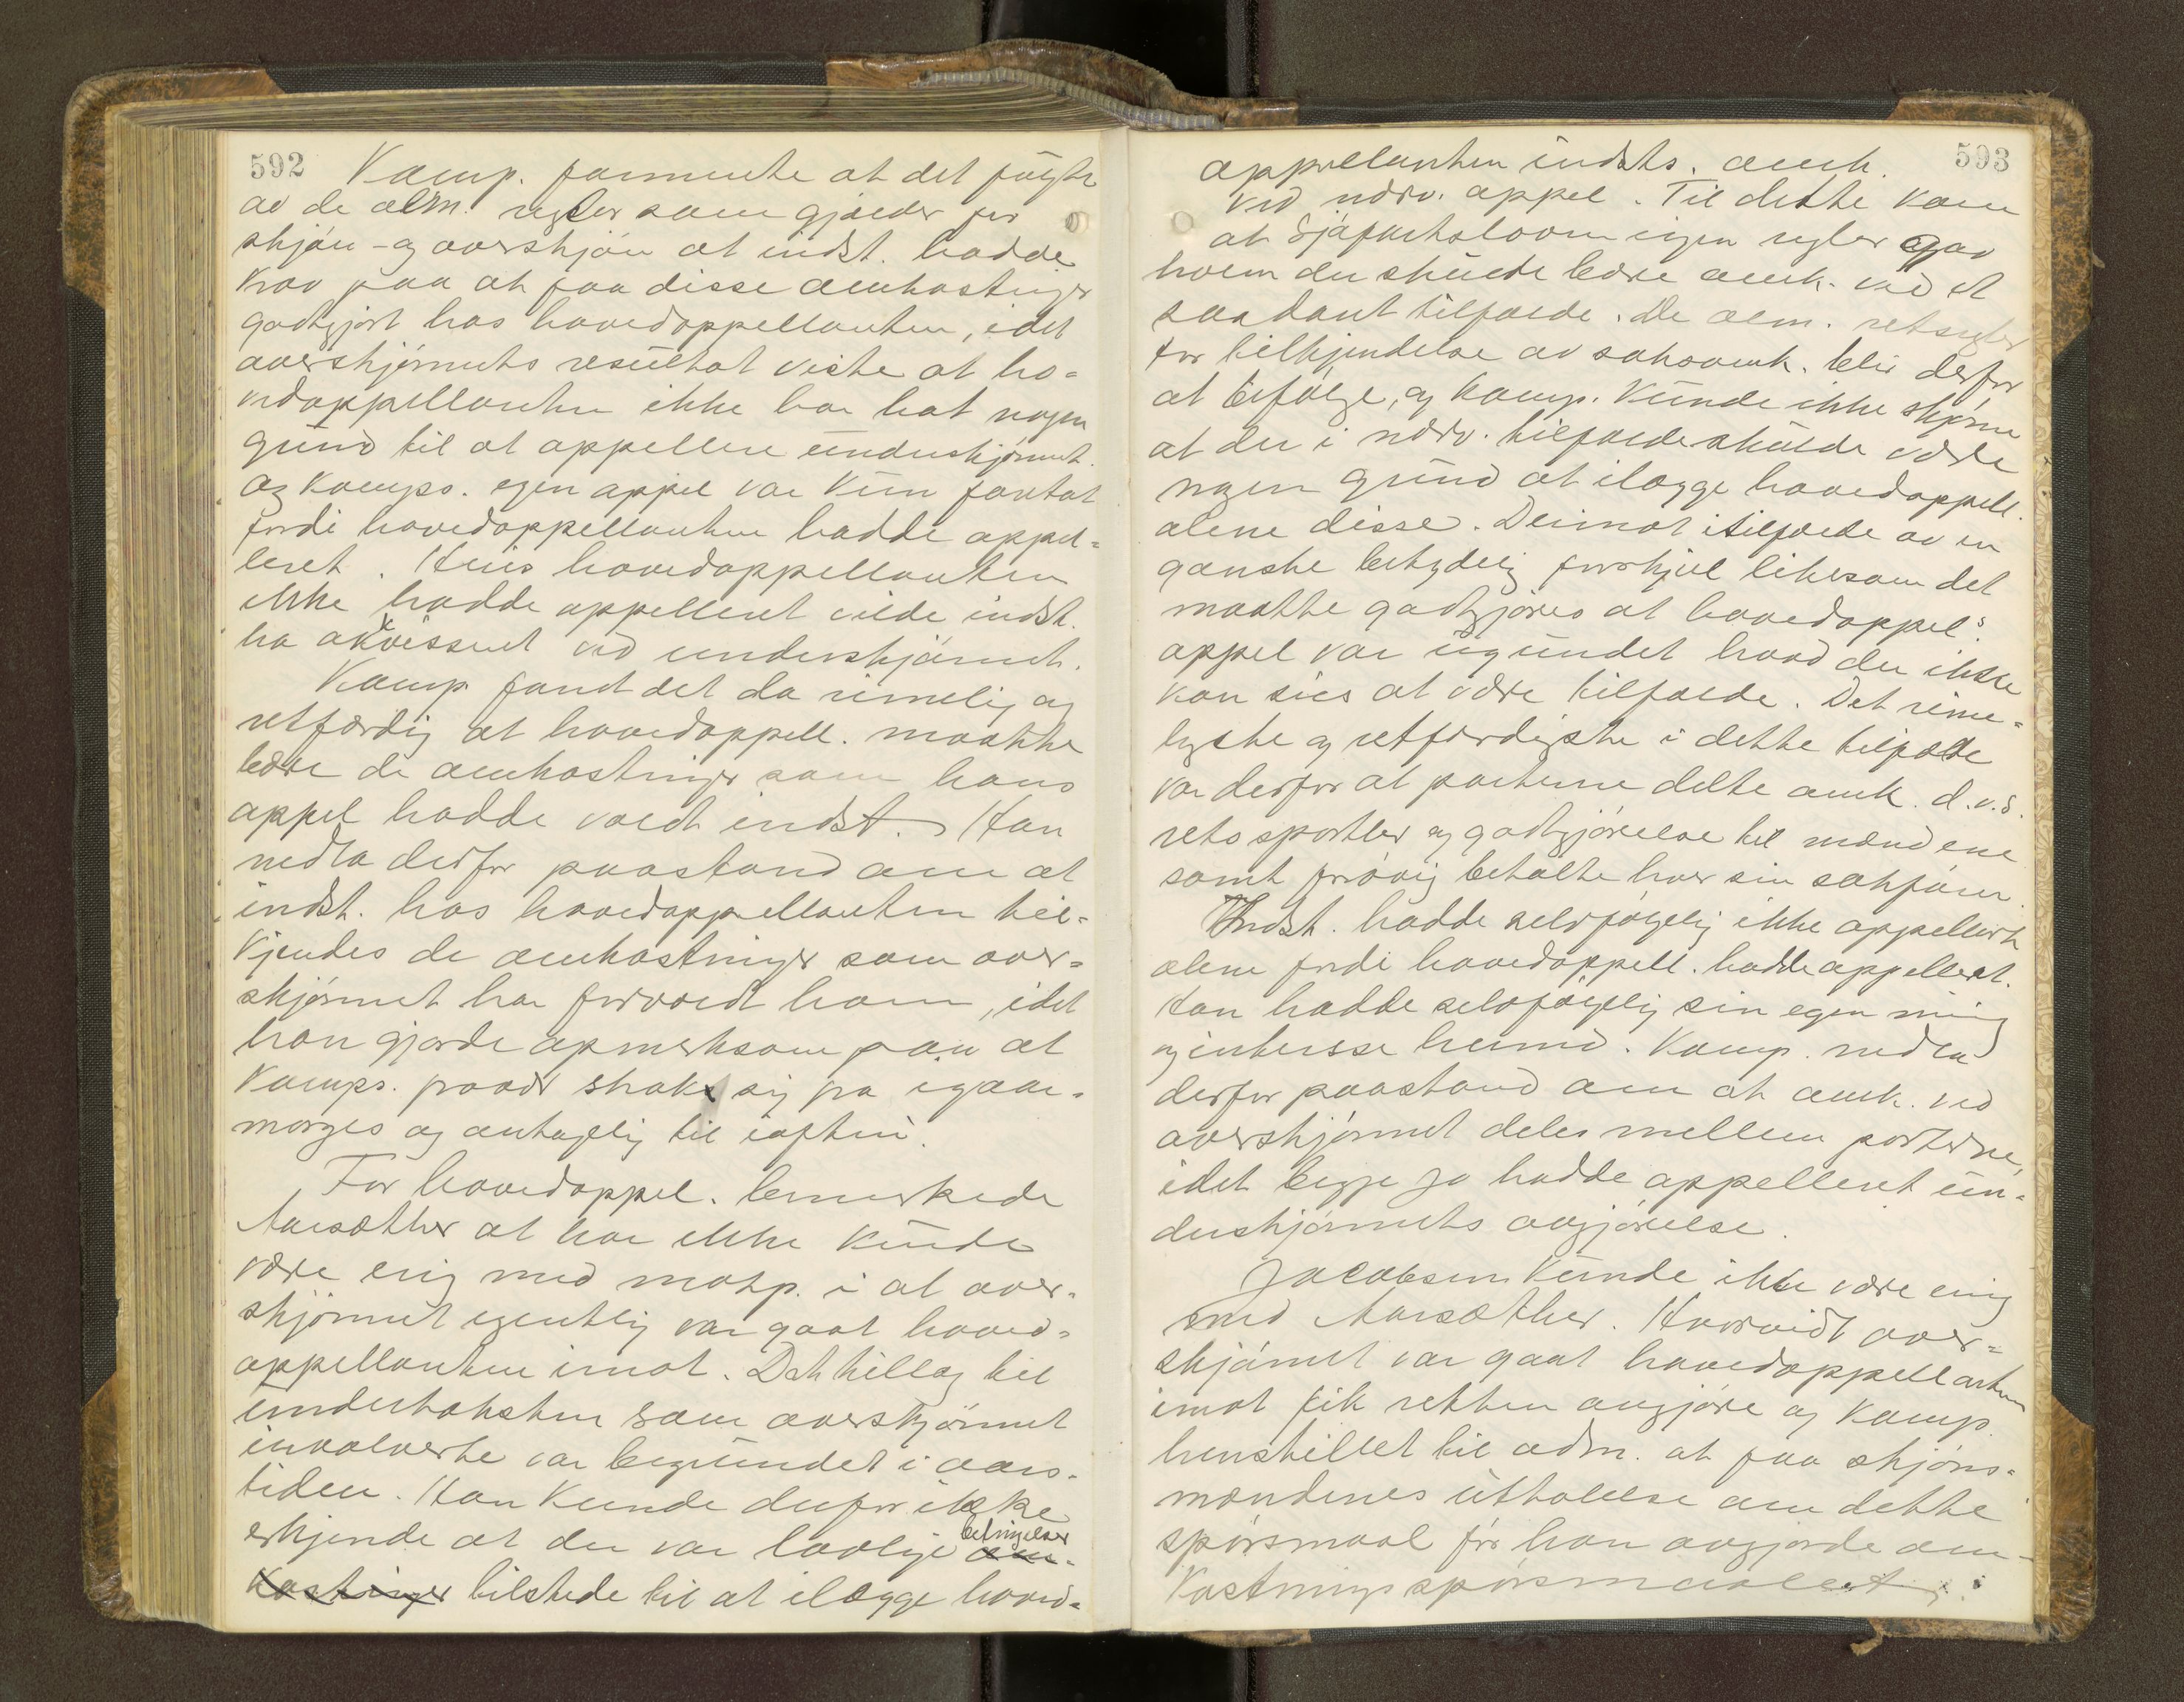 592
Komp. formente at det fulgte
av de alm. regler som gjælder for
skjøn- og overskjøn at indst. hadde
krav paa at faa disse omkostninger
godtgjort hos hovedappellanten, idet
overskjønnets resultat viste at ho-
vedappellanten ikke har hat nogen
grund til at appellere underskjønnet.
Og komps. egen appel var kun foretat
fordi hovedappellanten hadde appel-
leret. Hvis hovedappellanten
ikke hadde appelleret vilde indst.
ha akkvissert ved underskjønnet.
Komp. fandt det da rimelig og
retfærdig at hovedappell. maatte
bære de omkostninger som hans
appel hadde voldt indst. Han
nedla derfor paastand om at
indst. hos hovedappellanten til-
kjendes de omkostninger som over-
skjønnet har forvoldt ham, idet
han gjorde opmerksom paa at
Komps. fravær strak sig fra igaar-
morges og antagelig til iaften.
For hovedappel. bemerkede
Aarsæther at han ikke kunde
være enig med motp. i at over-
skjønnet egentlig var gaat hoved-
appellanten imot. Det tillæg til
undertaksten som overskjønnet
involverte var begrundet i aars-
tiden. Han kunde derfor ikke
betingelser
erkjende at der var lovlige om-
kostninger tilstede til at ilægge hoved-
593
appellanten indsts. omk.
ved nærv. appel. Til dette kom
at Sjøfartsloven ingen regler gav
hvem der skulde bære omk. ved et
saadant tilfælde. De alm. retsregler
for tilkjendelse av saksomk. blir derfor
at befølge, og komp. kunde ikke skjønne
at der i nærv. tilfælde skulde være
nogen grund at ilægge hovedappell.
alene disse. Derimot i tilfælde av en
ganske betydelig forskjel likesom det
maatte godtgjøres at hovedappel's.
appel var ugrundet hvad der ikke
kan sies at være tilfælde. Det rime-
ligste og retfærdigste i dette tilfælde
var derfor at parterne delte omk. d.v.s.
retssportler og godtgjørelse til mændene
samt forøvrig betalte hver sin sakfører.
Indst. hadde selvfølgelig ikke appellert
alene fordi hovedappell. hadde appellert.
Han hadde selvfølgelig sin egen mening
og interesse herved. Komp. nedla
derfor paastand om at omk. ved
overskjønnet deles mellem parterne,
idet begge jo hadde appelleret un-
derskjønnets avgjørelse.
Jacobsen kunde ikke være enig
med Aarsæther. Hvorvidt over-
skjønnet var gaat hovedappellanten
imot fik retten avgjøre og Komp.
henstillet til adm. at faa skjøns-
mændenes uttalelse om dette
spørsmaal før han avgjorde om-
kostningsspørsmaalet.